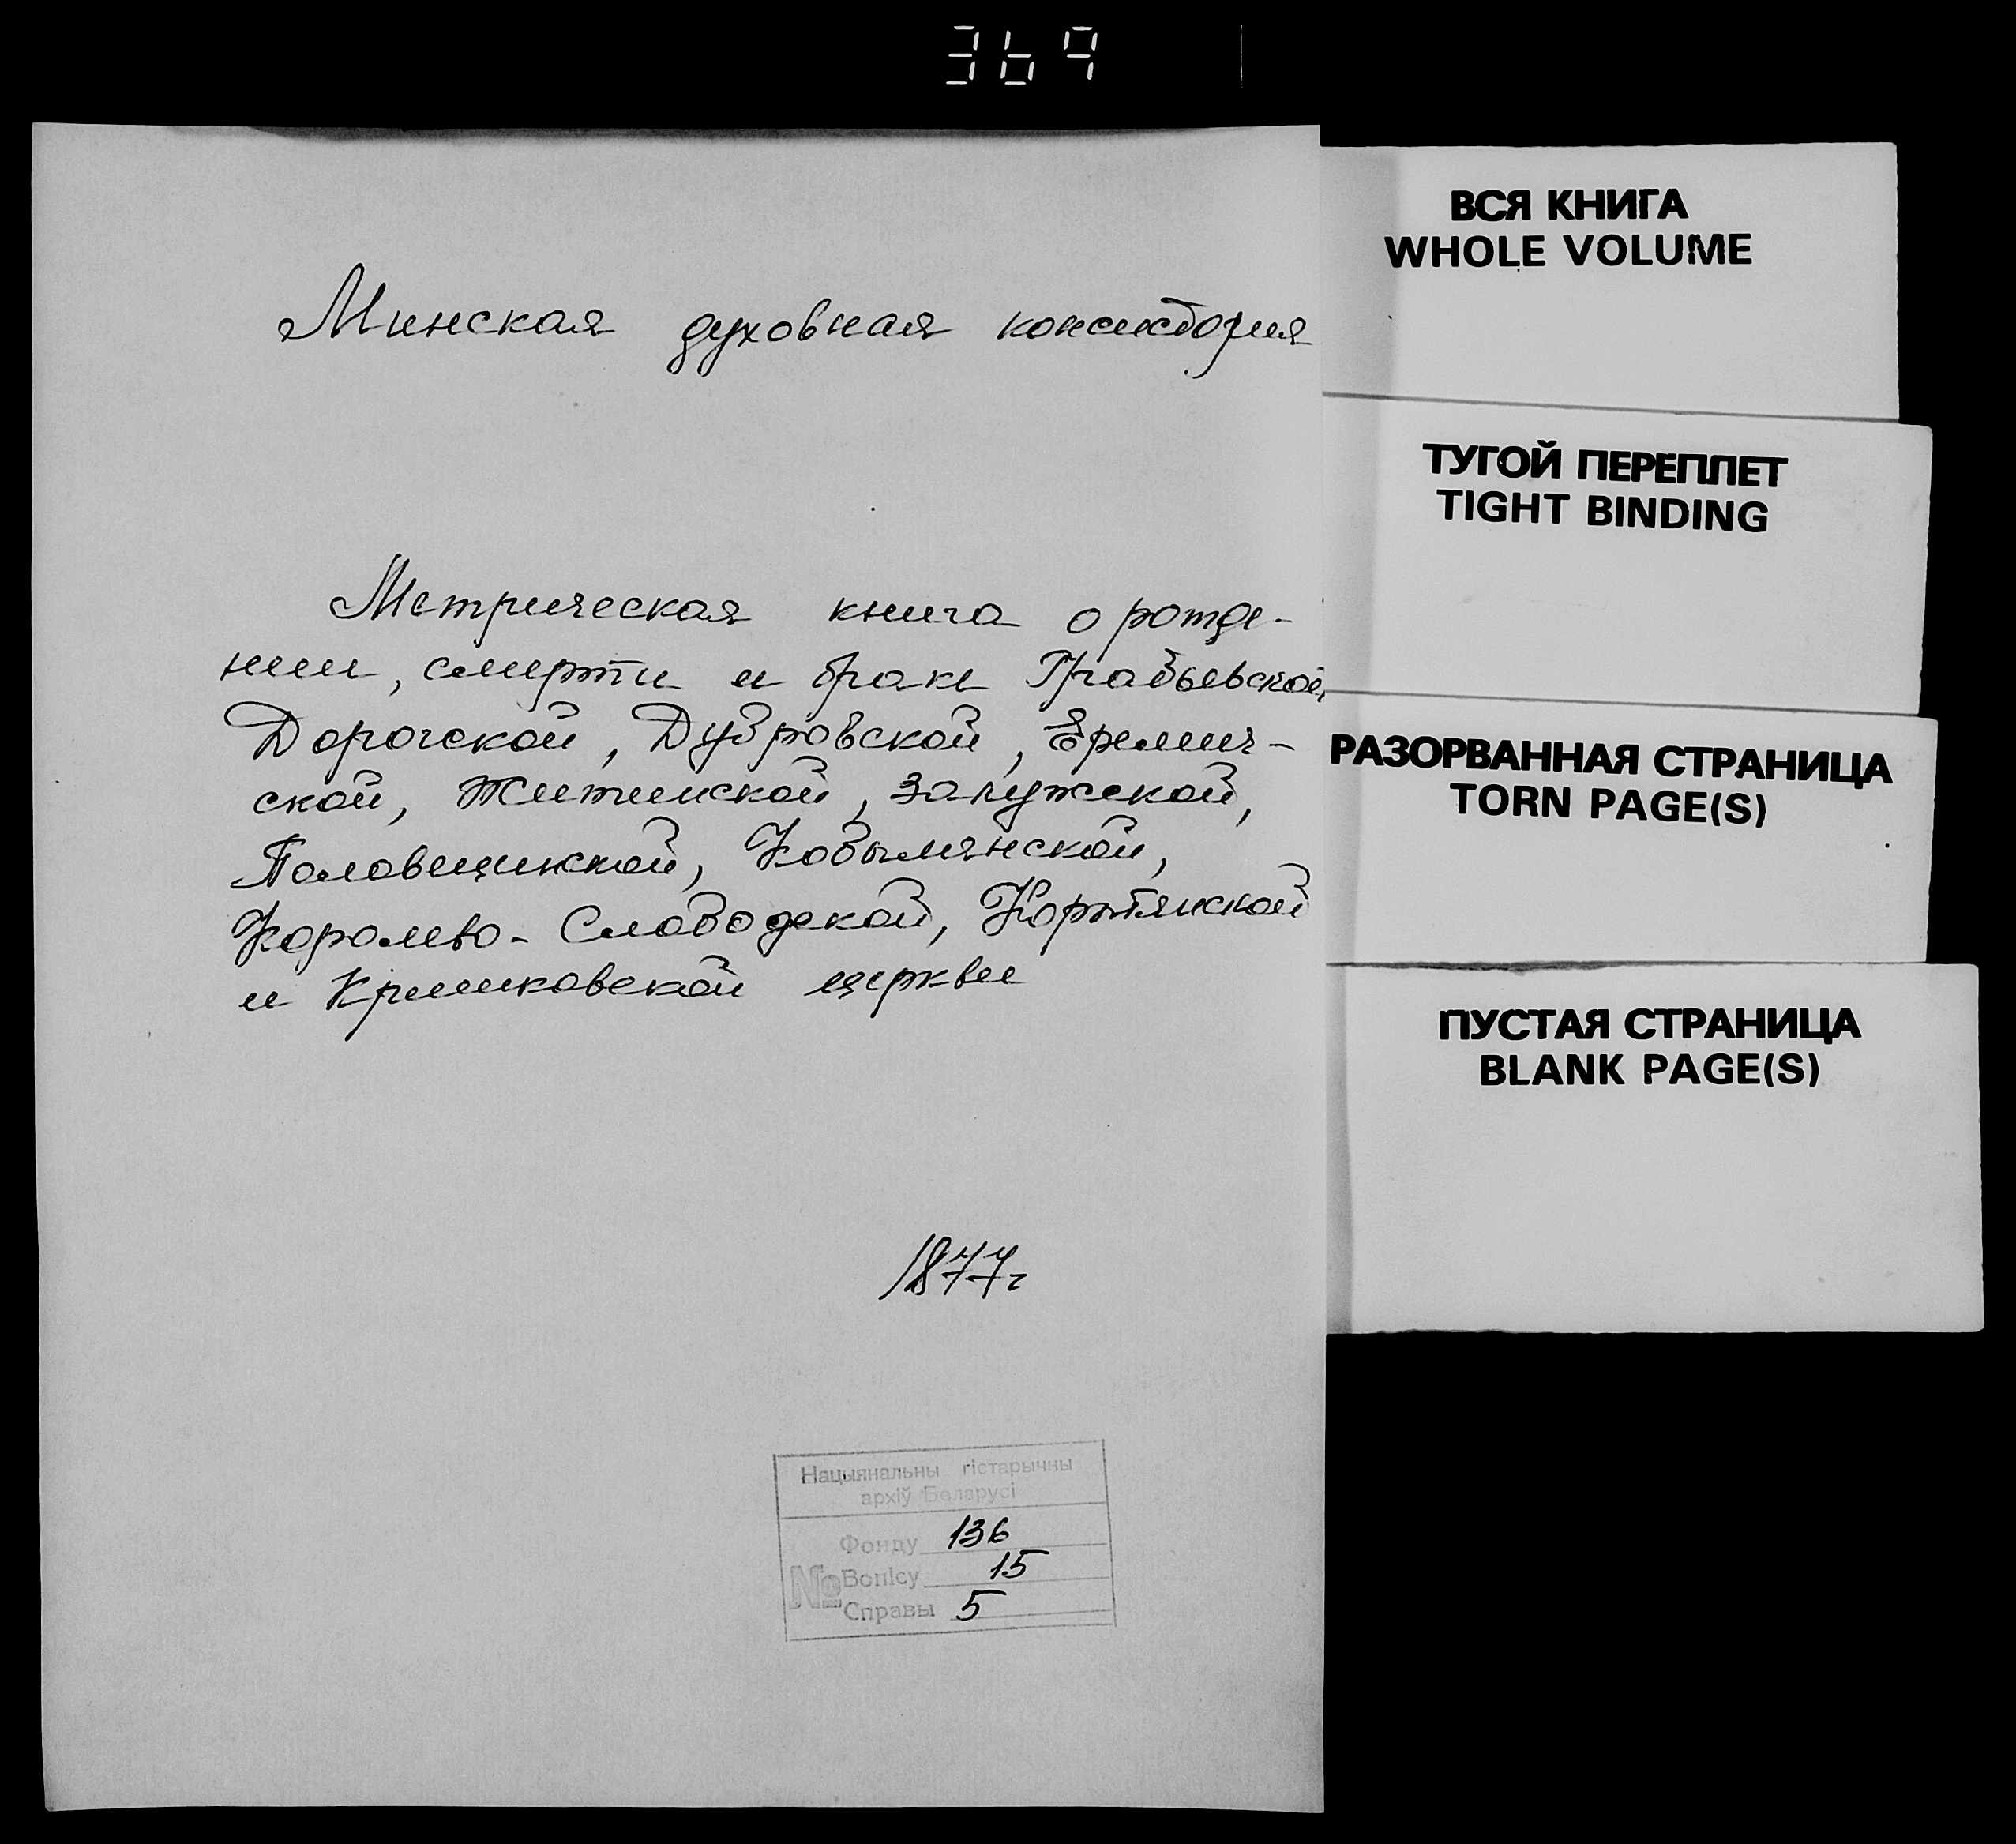 369
Минская духовная консистория
Метрическая книга о рожде-
нии, смерти и браке Грабьевской,
Дорогской, Дубровской, Еремич-
ской, Житинской, Залужской,
Половецинской, Кобылянской,
Королево-Слободской, Кортянской
и Кришковской церкви
1877г
Нацыянальны гістарычны
архіў Беларусі
Фонду 136
№ Вопісу 15
Справы 5
ВСЯ КНИГА
WHOLE VOLUME
ТУГОЙ ПЕРЕПЛЕТ
TIGHT BINDING
РАЗОРВАННАЯ СТРАНИЦА
TORN PAGE(S)
ПУСТАЯ СТРАНИЦА
BLANK PAGE(S)